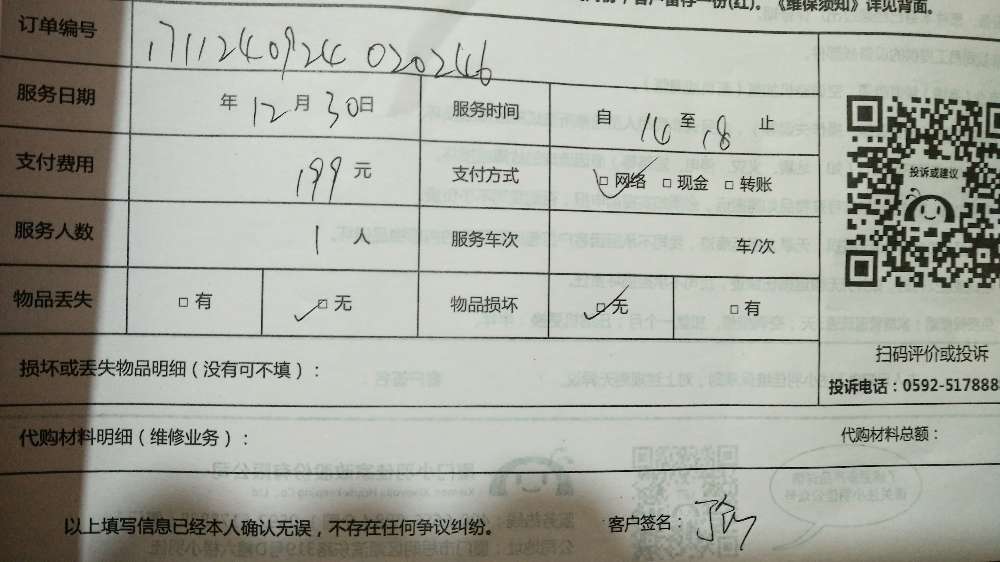 客户留存一份(红)。《维保须知》详见背面。
订单编号 171124092402 0246
服务日期 年 12 月 30 日 服务时间 自 14 至 18 止
支付费用 199 元 支付方式 ☑ 网络 □ 现金 □ 转账
服务人数 1 人 服务车次 车/次
物品丢失 □ 有 ☑ 无 物品损坏 ☑ 无 □ 有
投诉或建议
扫码评价或投诉
投诉电话：0592-517888
损坏或丢失物品明细（没有可不填）：
代购材料明细（维修业务）： 代购材料总额：
以上填写信息已经本人确认无误，不存在任何争议纠纷。 客户签名：